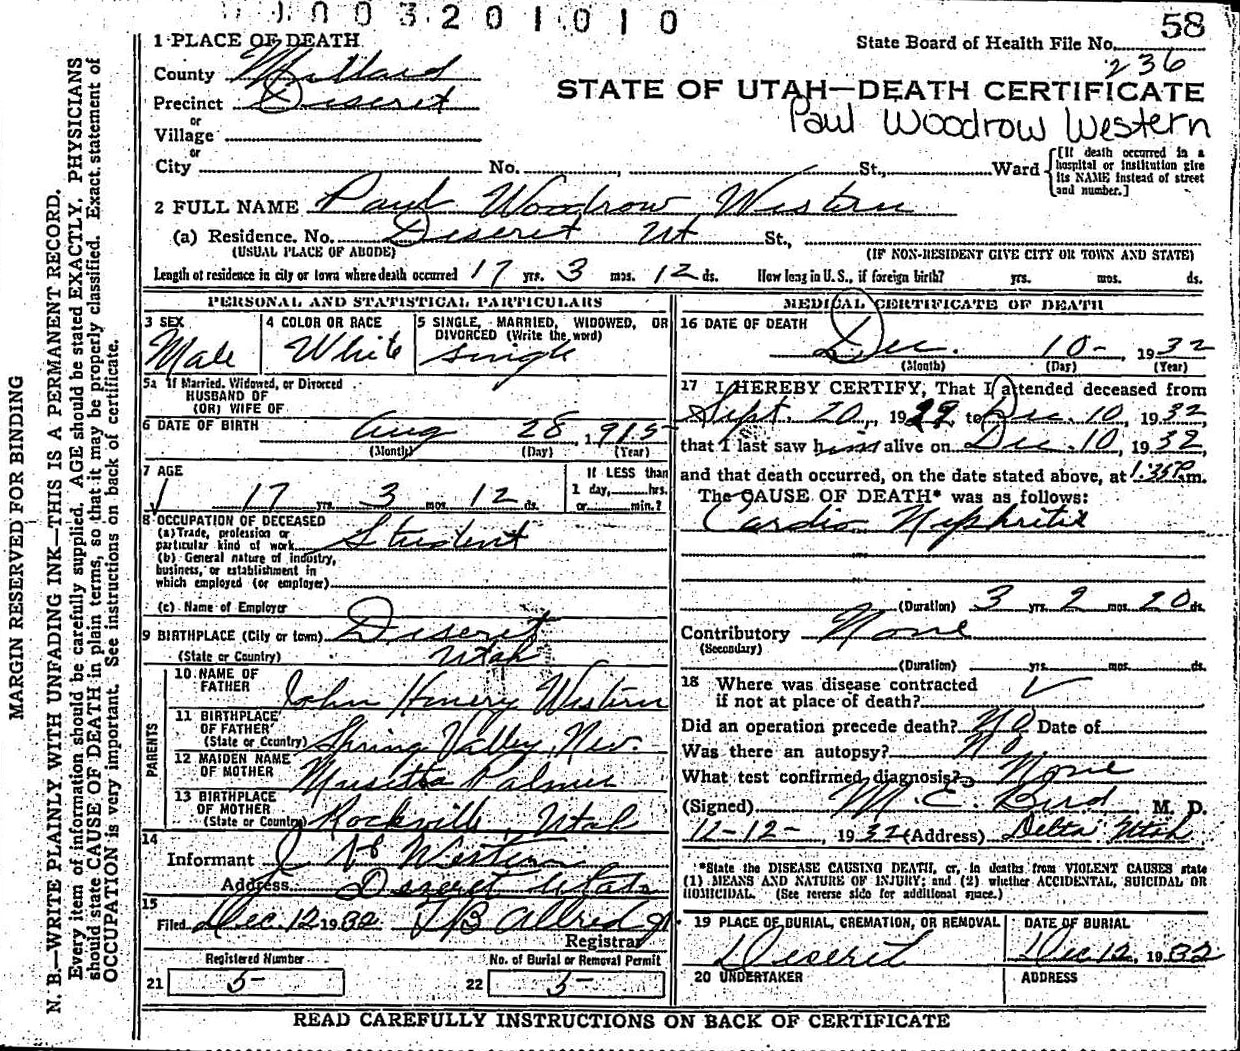 0003201010
58
1 PLACE OF DEATH
State Board of Health File No.
236
County Millard
STATE OF UTAH—DEATH CERTIFICATE
Precinct Deseret
Paul Woodrow Western
or
Village
or
City No. , St., Ward
[If death occurred in a hospital or institution give its NAME instead of street and number.]
2 FULL NAME Paul Woodrow Western
(a) Residence. No. Deseret Ut St.,
(USUAL PLACE OF ABODE) (IF NON-RESIDENT GIVE CITY OR TOWN AND STATE)
Length of residence in city or town where death occurred 17 yrs. 3 mos. 12 ds. How long in U.S., if foreign birth? yrs. mos. ds.
PERSONAL AND STATISTICAL PARTICULARS
3 SEX
Male
4 COLOR OR RACE
White
5 SINGLE, MARRIED, WIDOWED, OR
DIVORCED (Write the word)
Single
5a If Married, Widowed, or Divorced
HUSBAND OF
(OR) WIFE OF
6 DATE OF BIRTH Aug 28, 1915
(Month) (Day) (Year)
7 AGE
17 yrs. 3 mos. 12 ds.
If LESS than
1 day, hrs.
or min.?
8 OCCUPATION OF DECEASED
(a) Trade, profession or
particular kind of work Student
(b) General nature of industry,
business, or establishment in
which employed (or employer)
(c) Name of Employer
9 BIRTHPLACE (City or town) Deseret
(State or Country) Utah
PARENTS
10 NAME OF
FATHER John Henery Western
11 BIRTHPLACE
OF FATHER
(State or Country) Spring Valley, Nev.
12 MAIDEN NAME
OF MOTHER Musetta Palmer
13 BIRTHPLACE
OF MOTHER
(State or Country) Rockville, Utah
14
Informant J H Western
Address Deseret Utah
15
Filed Dec. 12 1932 Allred
Registrar
Registered Number
21 5
No. of Burial or Removal Permit
22 5
MEDICAL CERTIFICATE OF DEATH
16 DATE OF DEATH
Dec. 10-, 1932
(Month) (Day) (Year)
17 I HEREBY CERTIFY, That I attended deceased from
Sept. 20, 1929, to Dec. 10, 1932,
that I last saw him alive on Dec. 10, 1932,
and that death occurred, on the date stated above, at 1:35 P.m.
The CAUSE OF DEATH* was as follows:
Cardio Nephritis
(Duration) 3 yrs. 2 mos. 20 ds.
Contributory None
(Secondary)
(Duration) yrs. mos. ds.
18 Where was disease contracted
if not at place of death?
Did an operation precede death? No Date of
Was there an autopsy? No.
What test confirmed diagnosis? None
(Signed) M. E. Bird M. D.
12-12-, 1932 (Address) Delta Utah
*State the DISEASE CAUSING DEATH, or, in deaths from VIOLENT CAUSES state
(1) MEANS AND NATURE OF INJURY; and (2) whether ACCIDENTAL, SUICIDAL OR
HOMICIDAL. (See reverse side for additional space.)
19 PLACE OF BURIAL, CREMATION, OR REMOVAL
Deseret
DATE OF BURIAL
Dec 12, 1932
20 UNDERTAKER
ADDRESS
READ CAREFULLY INSTRUCTIONS ON BACK OF CERTIFICATE
MARGIN RESERVED FOR BINDING
N. B.—WRITE PLAINLY WITH UNFADING INK—THIS IS A PERMANENT RECORD.
Every item of information should be carefully supplied. AGE should be stated EXACTLY. PHYSICIANS
should state CAUSE OF DEATH in plain terms, so that it may be properly classified. Exact statement of
OCCUPATION is very important. See instructions on back of certificate.